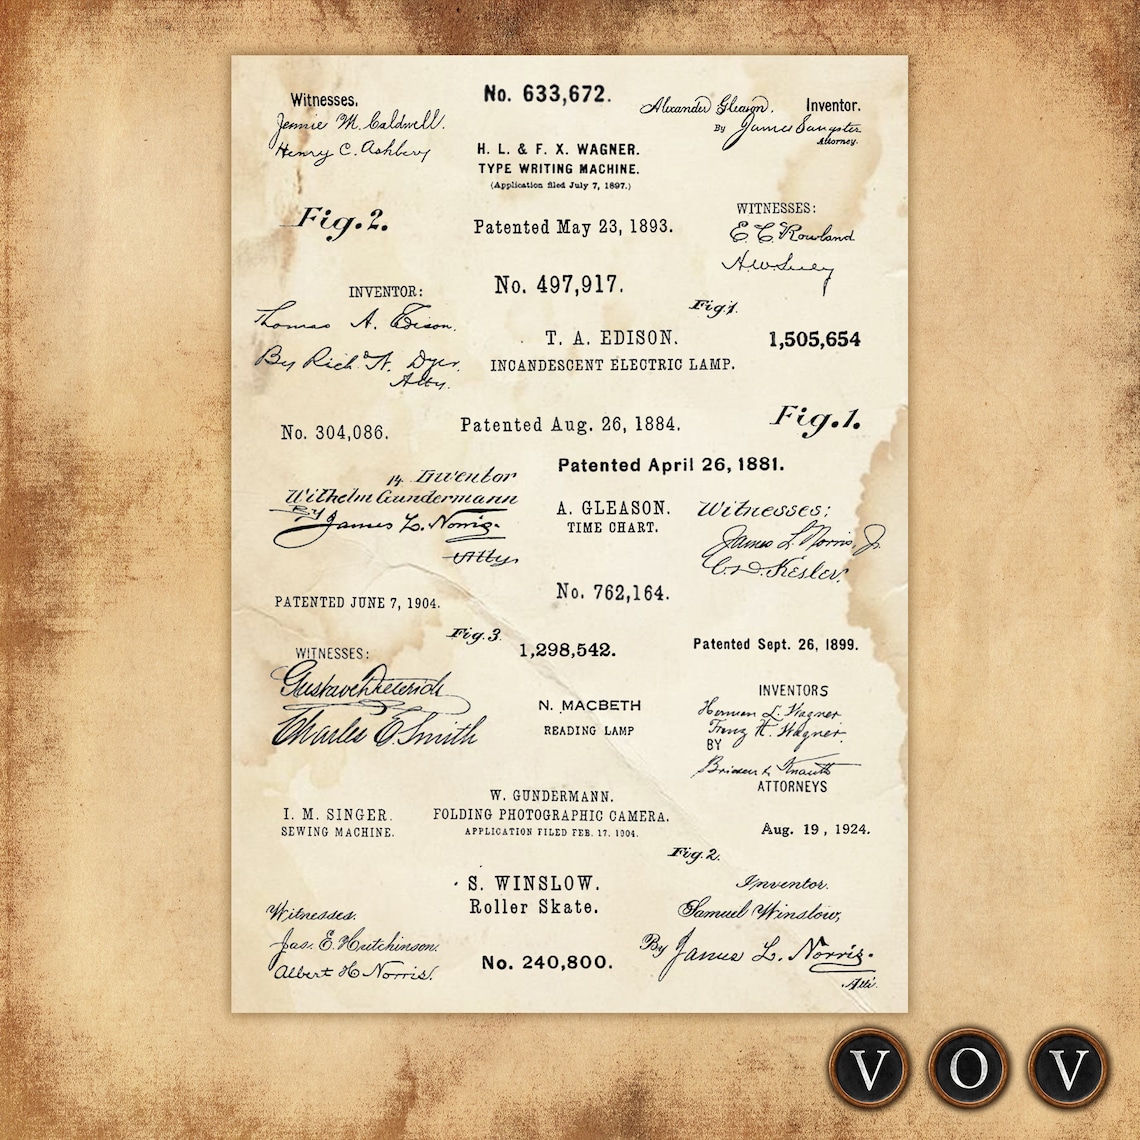 Witnesses,
Jennie M. Caldwell.
Henry C. Ashbery
No. 633,672.
Alexander Gleason. Inventor.
By James Sangster
Attorney.
H. L. & F. X. WAGNER.
TYPE WRITING MACHINE.
(Application filed July 7, 1897.)
Fig. 2.
Patented May 23, 1893.
WITNESSES:
E. C. Rowland
No. 497,917.
INVENTOR:
Thomas A. Edison.
By Rich. N. Dyer,
Atty.
Fig. 1.
T. A. EDISON.
INCANDESCENT ELECTRIC LAMP.
1,505,654
No. 304,086.
Patented Aug. 26, 1884.
Fig. 1.
Patented April 26, 1881.
Inventor
Wilhelm Gundermann
By
James L. Norris.
Atty.
A. GLEASON.
TIME CHART.
Witnesses;
James L. Norris, Jr.
C. D. Kesler.
No. 762,164.
PATENTED JUNE 7, 1904.
Fig. 3.
1,298,542.
Patented Sept. 26, 1899.
WITNESSES:
Gustave Dieterich
Charles E. Smith
N. MACBETH
READING LAMP
INVENTORS
Herman L. Wagner
Franz X. Wagner.
BY
Briesen & Knauth
ATTORNEYS
W. GUNDERMANN.
FOLDING PHOTOGRAPHIC CAMERA.
APPLICATION FILED FEB. 17, 1904.
I. M. SINGER.
SEWING MACHINE.
Aug. 19, 1924.
Fig. 2.
S. WINSLOW.
Roller Skate.
Inventor.
Samuel Winslow,
By James L. Norris.
Witnesses.
Jas. E. Hutchinson.
Albert H. Norris.
No. 240,800.
V O V